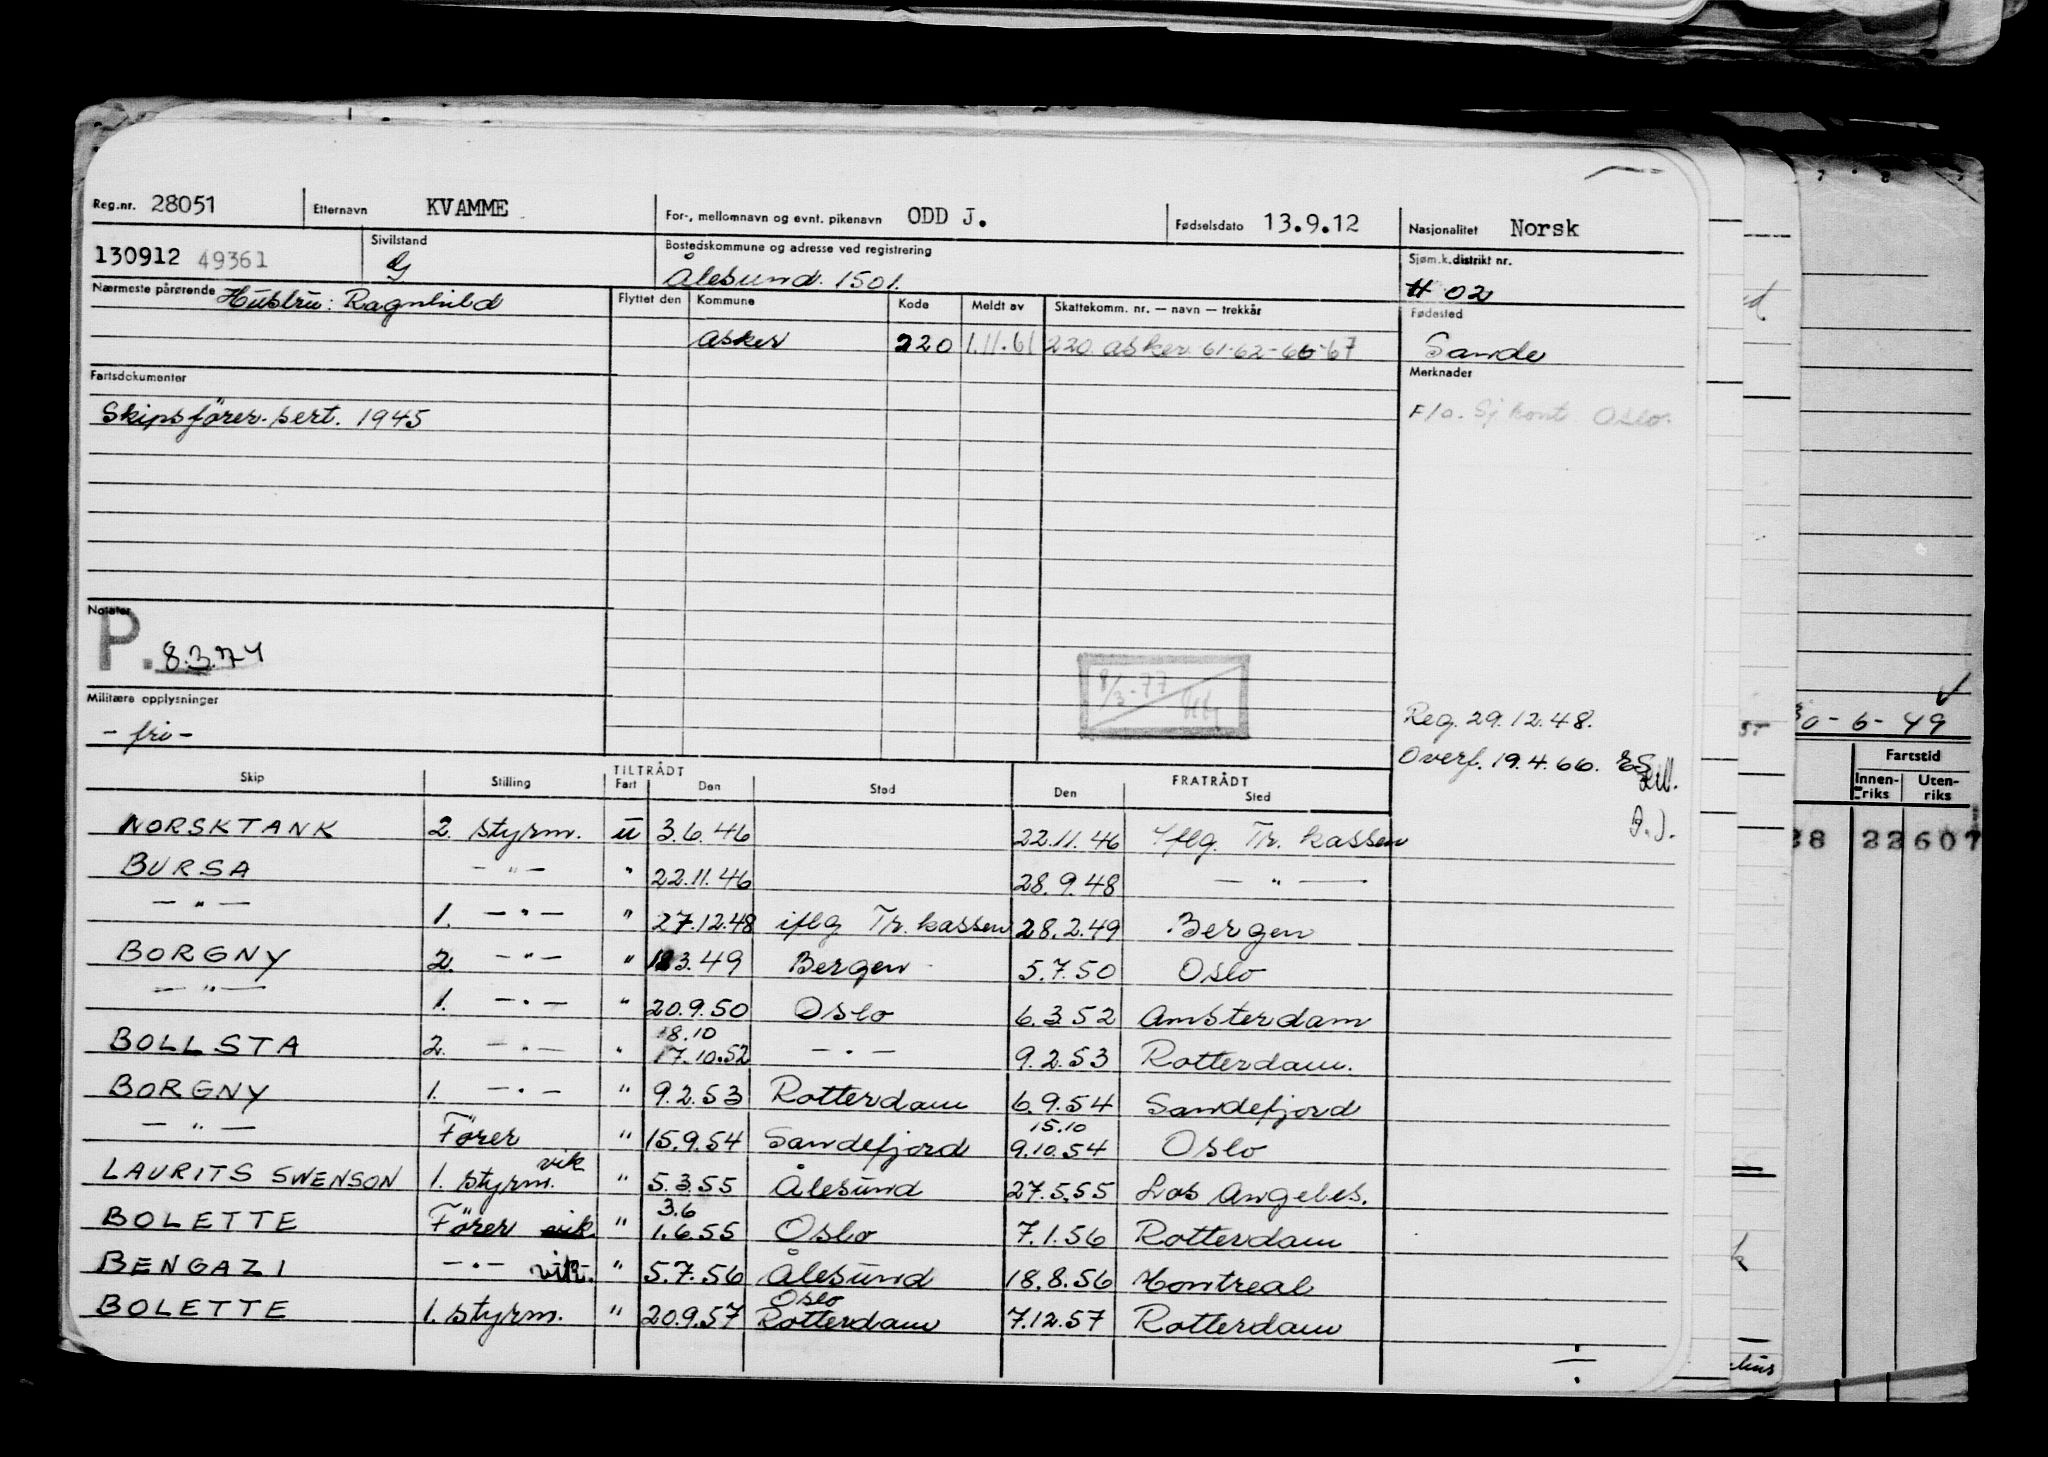 Reg.nr. 28051 Etternavn KVAMME For-, mellomnavn og evnt. pikenavn ODD J. Fødselsdato 13.9.12 Nasjonalitet Norsk
130912 49361 Sivilstand G Bostedskommune og adresse ved registrering Ålesund. 1501. Sjøm.k.distrikt nr. 02
Nærmeste pårørende Hustru: Ragnhild Flyttet den Kommune Kode Meldt av Skattekomm. nr. — navn — trekkår Fødested
Asker 220 1.11.61 220 Asker 61-62-66-67 Sande
Fartsdokumenter Merknader
Skipsförer-sert. 1945 F/o. Sj kont. Oslo.
Notater
P. 8.3.74
8/3-77
Militære opplysninger Reg. 29.12.48.
- fri - Overf. 19.4.66. ES
Skip Stilling TILTRÅDT Fart Den Sted FRATRÅDT Den Sted
NORSKTANK 2. styrm. u 3.6.46 22.11.46 iflg. Tr. kassen
BURSA — " — " 22.11.46 28.9.48 — " —
— " — 1. — " — " 27.12.48 iflg Tr. kassen 28.2.49 Bergen
BORGNY 2. — " — " 3.49 Bergen 5.7.50 Oslo
— " — 1. — " — " 20.9.50 Oslo 6.3.52 Amsterdam
18.10
BOLLSTA 2. — " — " 17.10.52 — " — 9.2.53 Rotterdam.
BORGNY 1. — " — " 9.2.53 Rotterdam 6.9.54 Sandefjord
15.10
— " — Förer " 15.9.54 Sandefjord 9.10.54 Oslo
vik
LAURITS SWENSON 1. styrm. " 5.3.55 Ålesund 27.5.55 Los Angeles.
3.6
BOLETTE Förer vik " 1.6.55 Oslo 7.1.56 Rotterdam
BENGAZI — " — vik. " 5.7.56 Ålesund 18.8.56 Montreal
Oslo
BOLETTE 1. styrm. " 20.9.57 Rotterdam 7.12.57 Rotterdam
30-6-49
Fartstid
Innen-riks Uten-riks
38 22 607